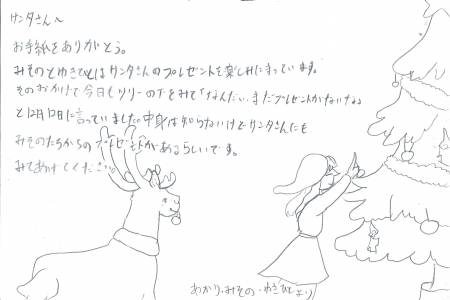 サンタさんへ
お手紙をありがとう。
みそのとゆきひとはサンタさんのプレゼントを楽しみにまっています。
そのおかげで今日もツリーの下をみて「なんだぃ、まだプレゼントかないけな」
と12月12日に言っていました。中身は知らないけどサンタさんにも
みそのたちからのプレゼントがあるらしいです。
みてあげてください。
あかり・みその・ゆきひとより